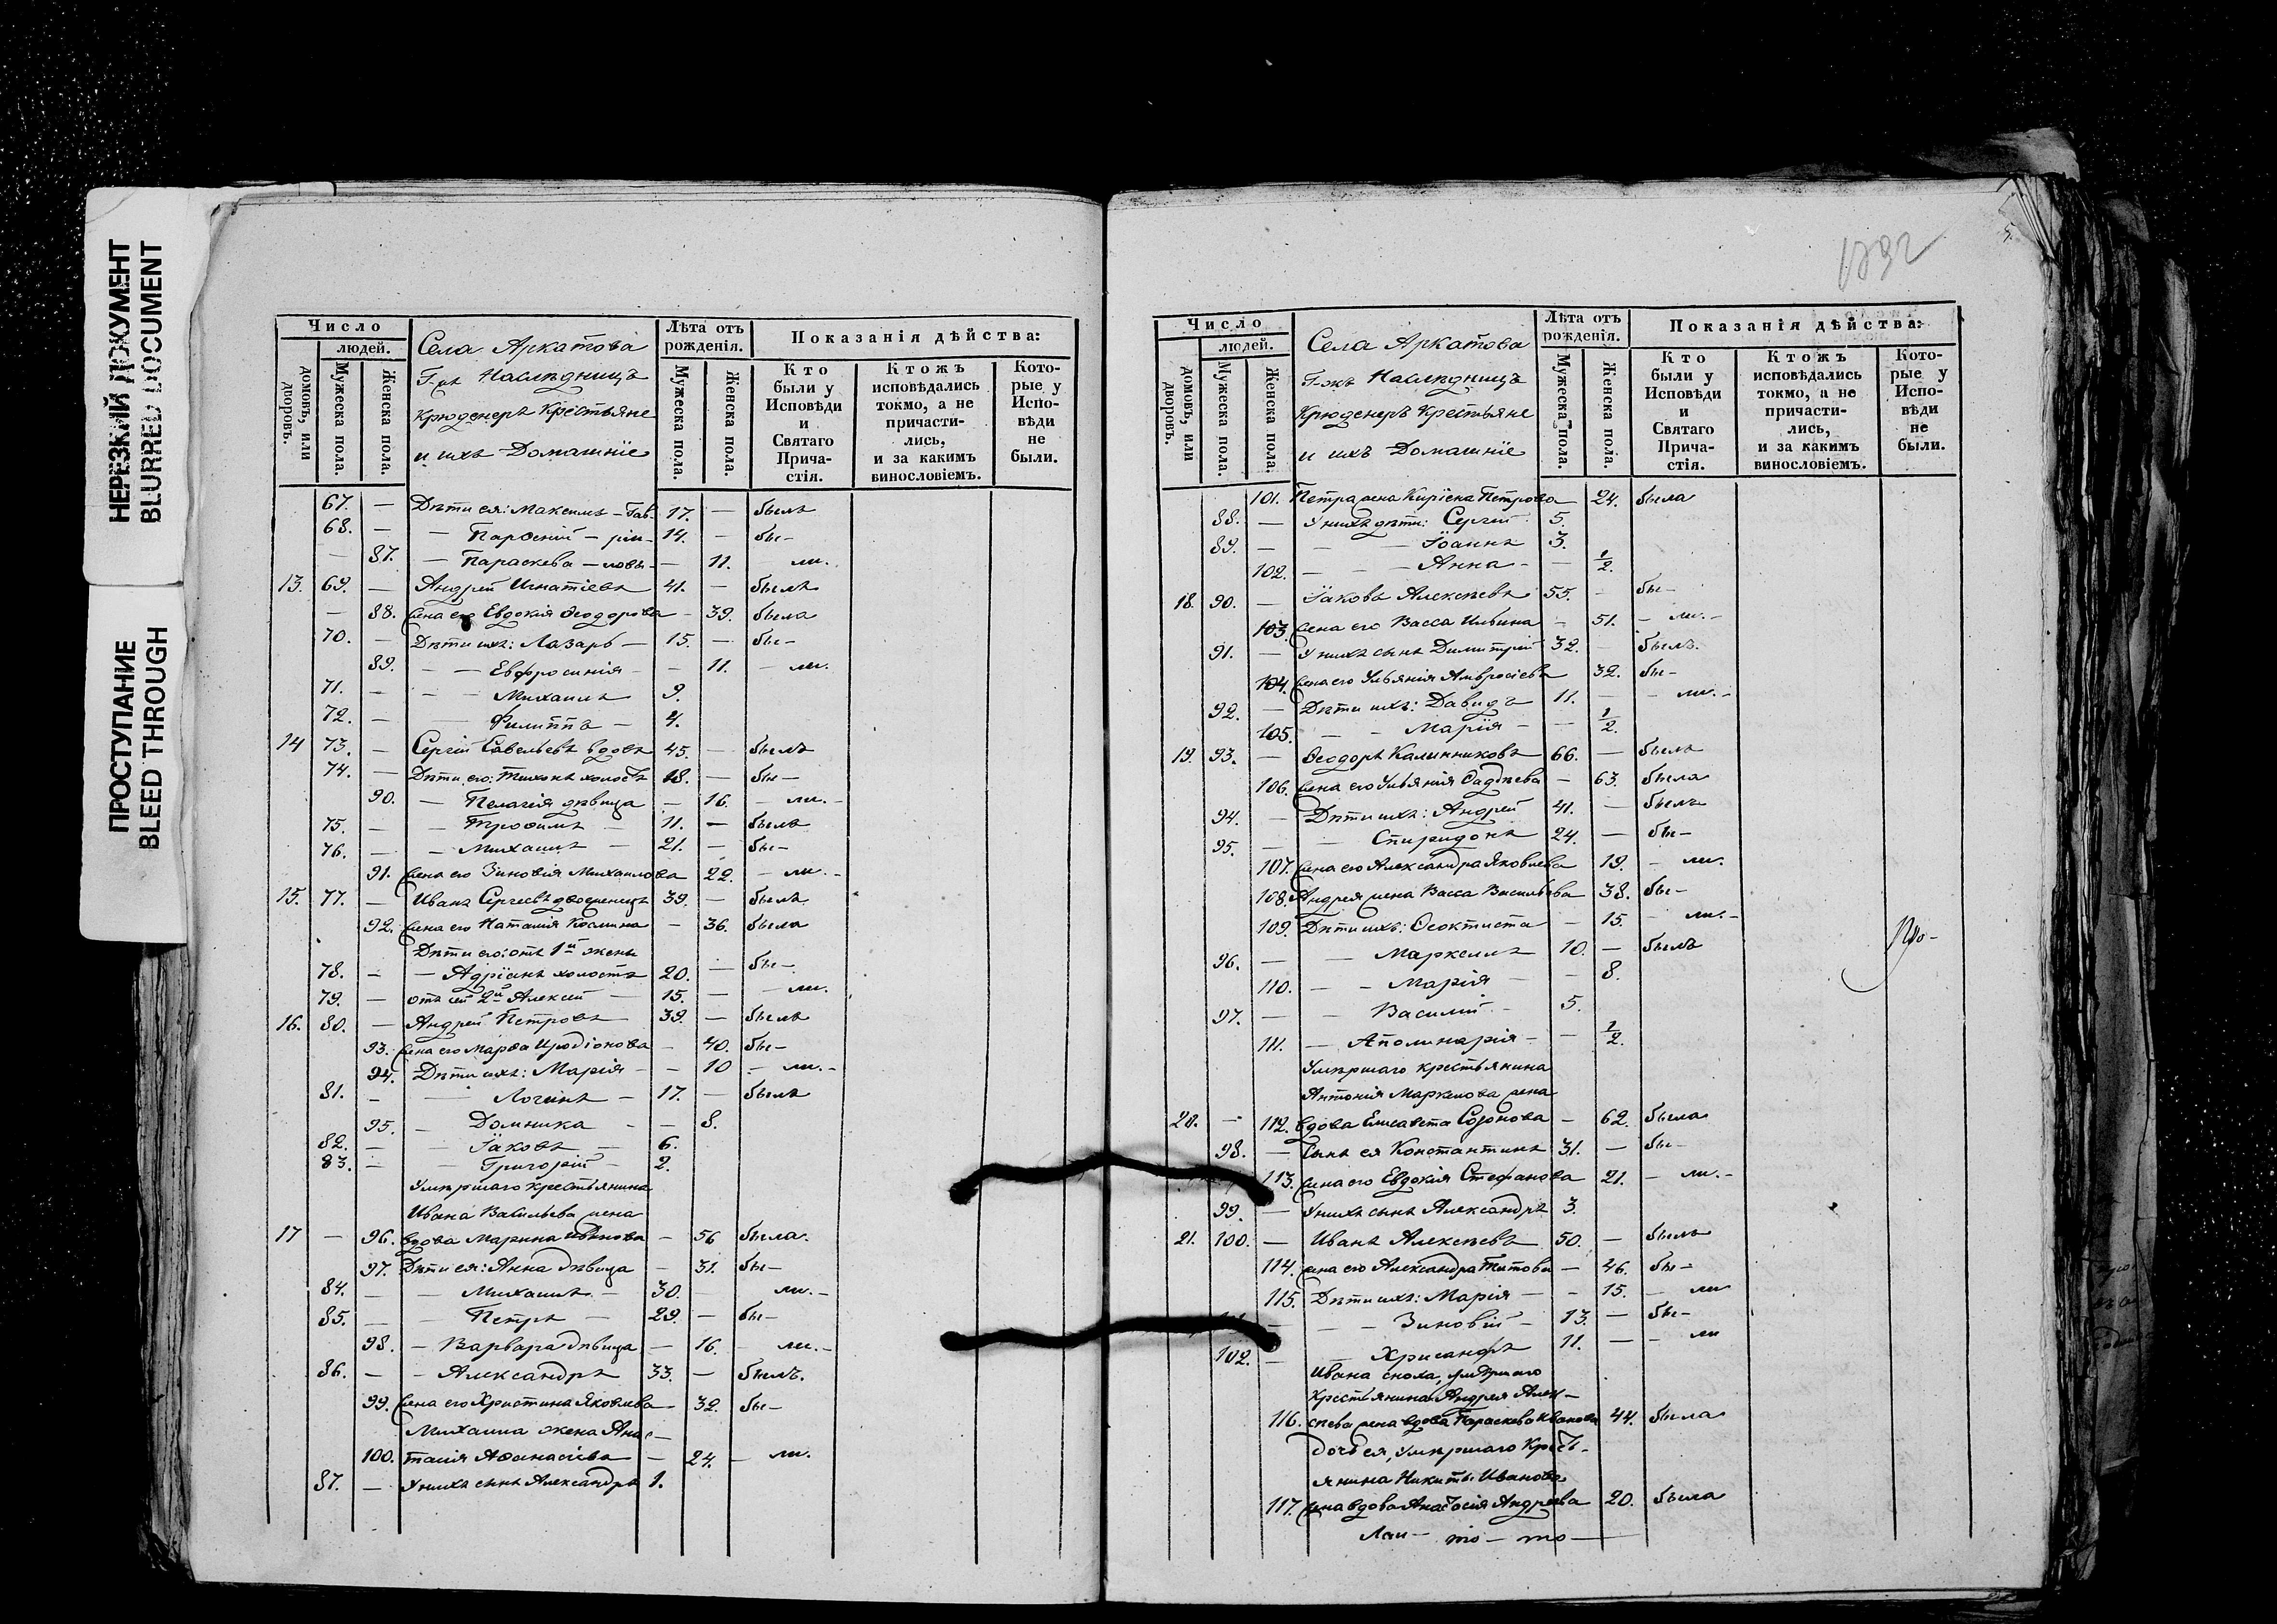 НЕРЕЗКИЙ ДОКУМЕНТ
BLURRED DOCUMENT
ПРОСТУПАНИЕ
BLEED THROUGH
Число
людей.
домовъ, или дворовъ.
Мужеска пола.
Женска пола.
Села Аркатова
Г-жъ Наслѣдницъ
Крюденеръ Крестьяне
и ихъ Домашніе
Лѣта отъ рожденія.
Мужеска пола
Женска пола.
Показанія дѣйства:
Кто были у Исповѣди и Святаго Причастія.
Ктожъ исповѣдались токмо, а не причастились, и за какимъ винословіемъ.
Которые у Исповѣди не были.
67. — Дѣти ея: Максимъ — Гав- 17. — былъ
68. — — Парѳеній — рiи- 14. — бы—
— 87. — Параскева — ловы — 11. — ли.
13. 69. — Андрей Игнатіевъ 41. — былъ
— 88. жена его Евдокія Ѳеодорова — 39. была
70. — Дѣти ихъ: Лазарь — 15. — бы—
89. — — Евфросинія — — 11. — ли.
71. — — — Михаилъ 9.
72. — — Филиппъ — 4.
14 73. — Сергій Савельевъ вдовъ 45. — былъ
74. — Дѣти его: Тихонъ холостъ 18. — бы—
90. — Пелагія дѣвица — 16. — ли. —
75. — — Трофимъ — 11. — былъ
76. — — Михаилъ — 21. — бы—
91. жена его Зиновія Михаилова 22. — ли. —
15. 77. — Иванъ Сергеевъ двоеженецъ 39. — былъ
92. жена его Наталія Космина — 36. была
Дѣти его: отъ 1й жены
78. — — Адріанъ холостъ 20. — бы—
79. — отъ сей 2й Алексей — 15. — — ли.
16. 80. — Андрей Петровъ 39. — былъ
93. жена его Марѳа Иродіонова — 40. бы—
94. Дѣти ихъ: Марія — — 10 — ли. —
81. — — Логинъ — 17. — былъ
95. — Домника — — 8.
82. — — Іаковъ — 6.
83. — — Григорій — 2.
Умершаго крестьянина
Ивана Васильева жена
17 — 96. вдова Марина — 56 была.
97. Дѣти ея: Анна дѣвица — 31. бы—
84. — — Михаилъ — 30. ли. —
85. — — Петръ — 29. — бы—
98. — Варвара дѣвица — 16. — ли. —
86. — — Александръ 33. — былъ.
99. жена его Христина Яковлева — 32. бы—
Михаила жена Анас—
100. тасія Аѳанасіева — 24. — ли.
87. — У нихъ сынъ Александръ 1.
1792
5.
Число
людей.
домовъ, или дворовъ.
Мужеска пола.
Женска пола.
Села Аркатова
Г-жъ Наслѣдницъ
Крюденеръ Крестьяне
и ихъ Домашніе
Лѣта отъ рожденія.
Мужеска пола.
Женска пола.
Показанія дѣйства:
Кто были у Исповѣди и Святаго Причастія.
Ктожъ исповѣдались токмо, а не причастились, и за какимъ винословіемъ.
Которые у Исповѣди не были.
101. Петра жена Киріена Петрова 24. была
88. — У нихъ дѣти: Сергій 5.
89. — — — Іоаннъ 3.
102. — — — Анна — — 1/2.
18. 90. — Іаковъ Алексѣевъ 55. — бы—
103. жена его Васса Ильина — 51. — ли. —
91. — У нихъ сынъ Димитрій 32. — былъ.
104. жена его Ульянія Амвросіева 32. бы—
92. — Дѣти ихъ: Давидъ 11. — — ли. —
105. — — Марія — — 1/2.
19. 93. — Ѳеодоръ Калинниковъ 66. — былъ
106. жена его Ульянія Фадѣева — 63. была
94. — Дѣти ихъ: Андрей 41. — былъ
95. — — Спиридонъ 24. — бы—
107. жена его Александра Яковлева 19. — ли.
108. Андрея жена Васса Васильева 38. бы—
109. Дѣти ихъ: Ѳеоктиста — 15. — ли. —
96. — — Маркеллъ 10. — былъ
110. — — Марія — — 8.
97. — — Василій — 5.
111. — Аполинарія — — 1/2.
Умершаго крестьянина
Антонія Маркелова жена
20. — 112. вдова Елисавета Созонова — 62. была
98. — Сынъ ея Константинъ 31. — бы—
113. жена его Евдокія Стефанова 21. — ли. —
99. — У нихъ сынъ Александръ 3.
21. 100. — Иванъ Алексѣевъ 50. — былъ
114. жена его Александра Титова — 46. бы—
115. Дѣти ихъ: Марія — — 15. — ли
— — — Зиновій — 13. — бы—
102. — — Хрисанфъ 11. — — ли
Ивана сноха, умершаго
Крестьянина Андрея Алек—
116. сѣева жена вдова Параскева Иванова 44. была
дочь ея, умершаго Кресть-
янина Никиты Иванова
117. жена вдова Анастасія Андреева 20. была